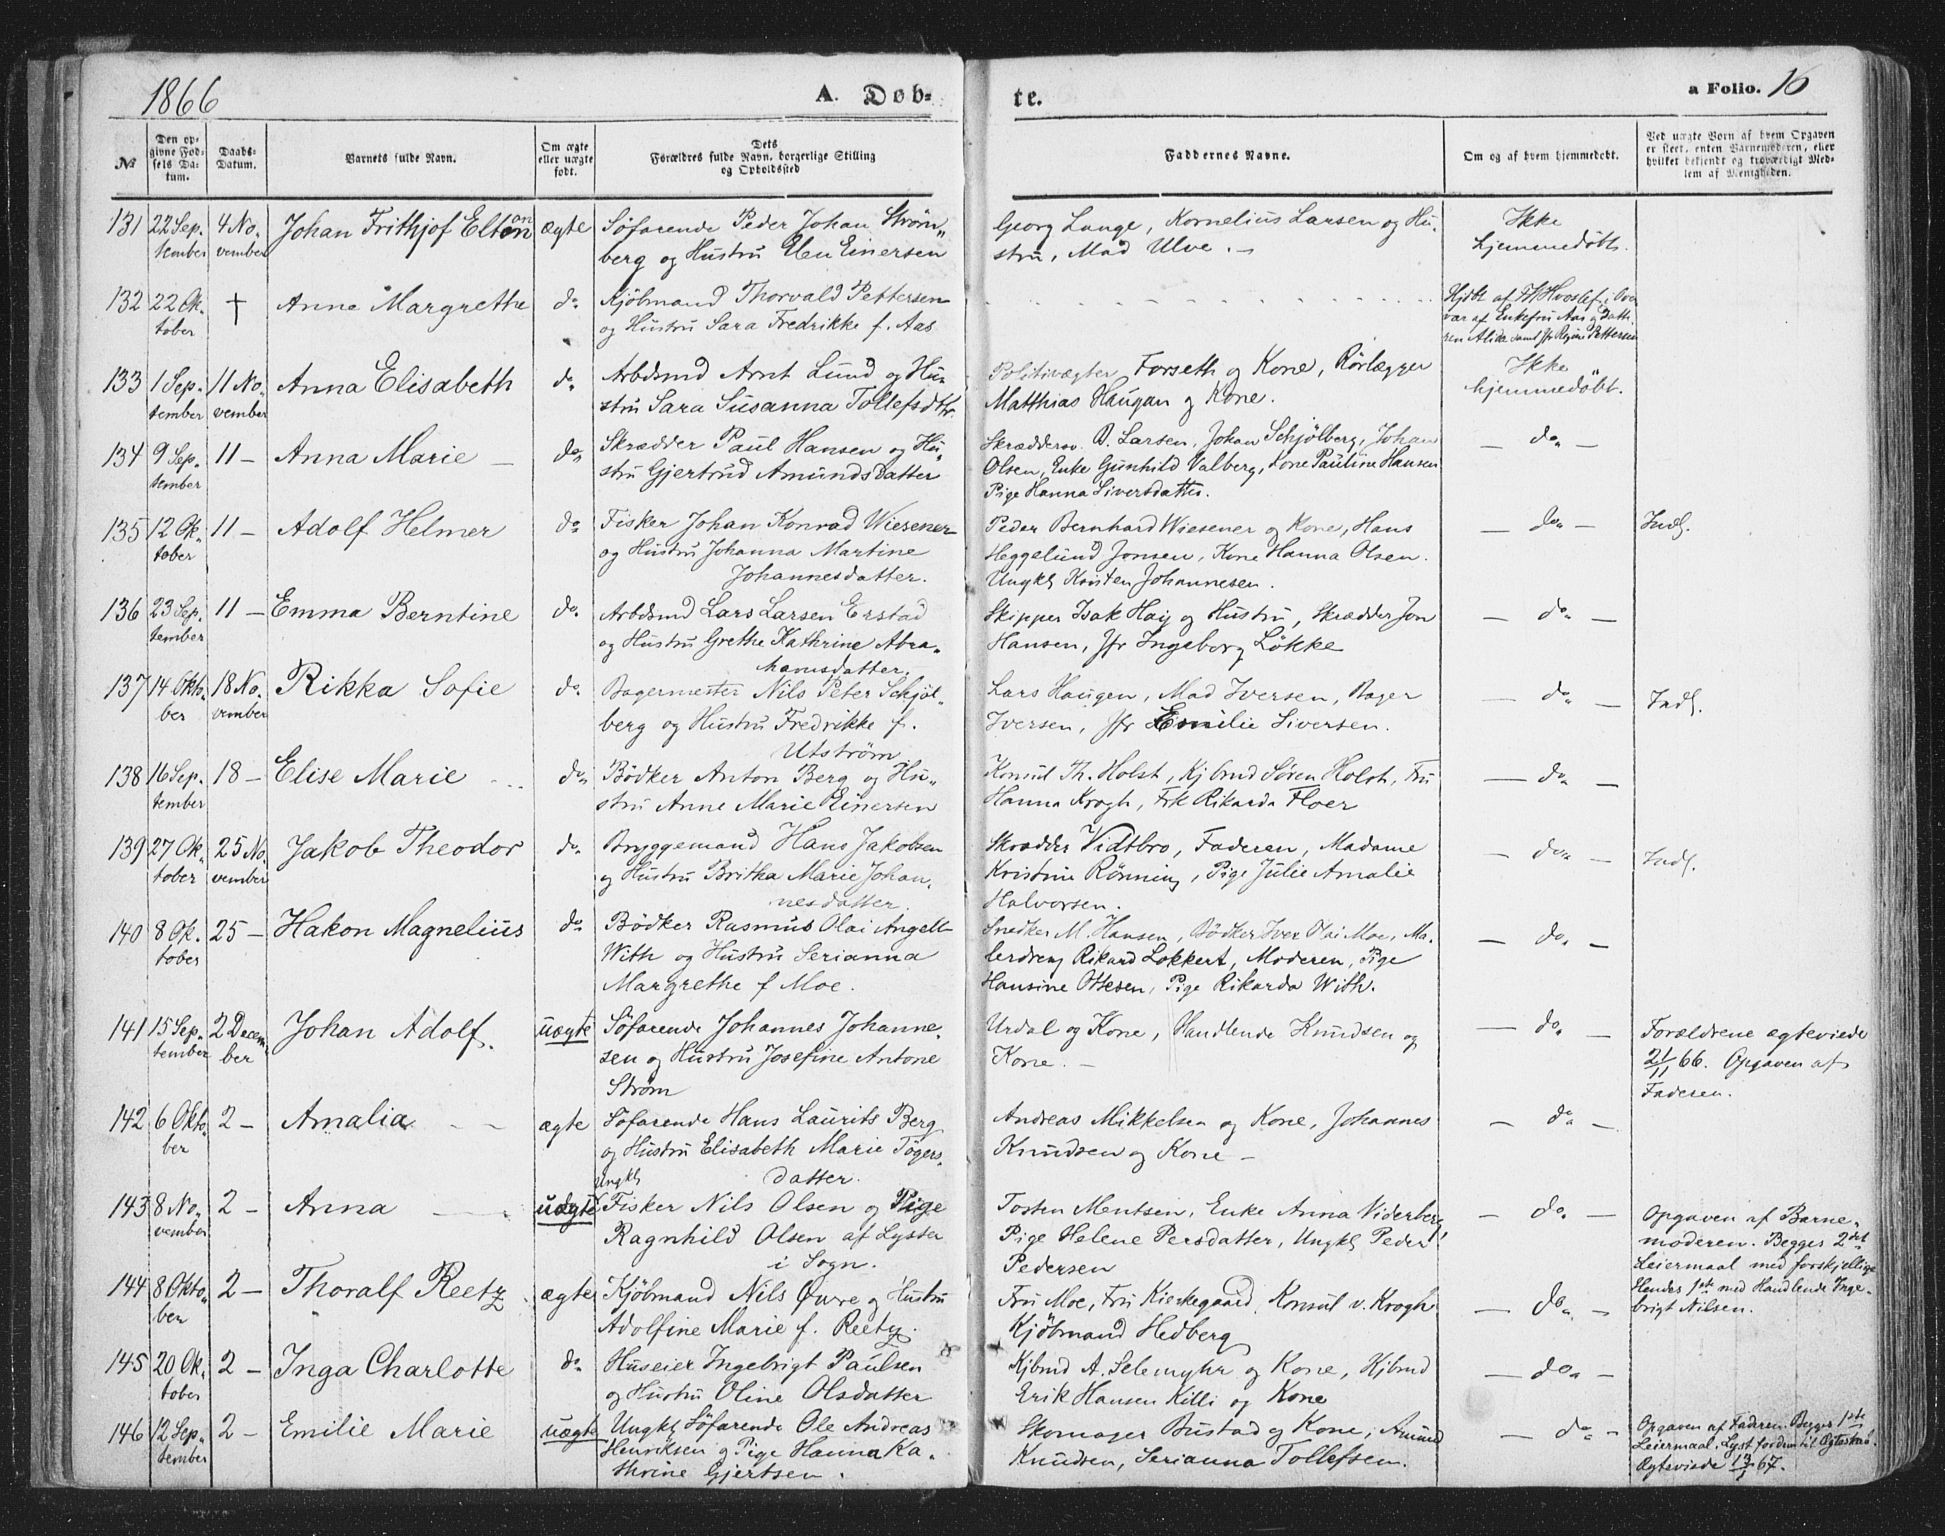 1866
A. Døb-
te.
a Folio. 16
No
Den op-
givne Fød-
sels Da-
tum.
Daabs-
Datum.
Barnets fulde Navn.
Om ægte
eller uægte
født.
Dets
Forældres fulde Navn, borgerlige Stilling
og Opholdssted
Faddernes Navne.
Om og af hvem hjemmedøbt.
Ved uægte Børn af hvem Opgaven
er skeet, enten Barnemoderen, eller
hvilket bekjendt og troværdigt Med-
lem af Menigheden.
131 22 Sep-
tember
4 No-
vember
Johan Frithjof Elton
ægte
Søfarende Peder Johan Strøm-
berg og Hustru Elen Einersen
Georg Lange, Kornelius Larsen og Hu-
stru, Mad Ulve. —
Ikke
hjemmedøbt.
132 22 Ok-
tober
†
Anne Margrethe
do
Kjöbmand Thorvald Pettersen
og Hustru Sara Fredrikke f. Aas
Hjdbt af
vær af Enkefru Aas og Datt-
ren Alida samt Jfr Regine Pettersen
133 1 Sep-
tember
11 No-
vember
Anna Elisabeth
do
Arbdsmd Arnt Lund og Hu-
stru Sara Susanna Tollefsdtr.
Politivægter Forseth og Kone, Rörlægger
Matthias Haugan og Kone.
Ikke
hjemmedöbt.
134 9 Sep-
tember
11 —
Anna Marie —
do
Skrædder Paul Hansen og Hu-
stru Gjertrud Amunds Datter
Skræddersv. D. Larsen, Johan Schjölberg, Johan
Olsen, Enke Gunhild Valberg, Kone Pauline Hansen
Pige Hanna Siversdatter.
— do —
135 12 Ok-
tober
11 —
Adolf Helmer
do
Fisker Johan Konrad Wiesener
og Hustru Johanna Martine
Johannesdatter.
Peder Bernhard Wiesener og Kone, Hans
Heggelund Jonsen, Kone Hanna Olsen.
Ungkl Kristen Johannesen.
— do —
Indl.
136 23 Sep-
tember
11 —
Emma Berntine
do
Arbdsmd Lars Larsen Erstad
og Hustru Grethe Kathrine Abra-
hamsdatter.
Skipper Isak Haij og Hustru, Skrædder Jon
Hansen, Jfr Ingeborg Lökke
— do —
137 14 Okto-
ber
18 No-
vember
Rikka Sofie
do
Bagermester Nils Peter Schjöl-
berg og Hustru Fredrikke f.
Utström
Lars Haugen, Mad Iversen, Bager
Iversen, Jfr Emilie Siversen.
— do —
Indl.
138 16 Sep-
tember
18 —
Elise Marie
do
Bödker Anton Berg og Hu-
stru Anne Marie Einersen
Konsul Th. Holst, Kjbmd Sören Holst, Fru
Hanna Krogh, Frk Rikarda Floer
— do —
139 27 Ok-
tober
25 No-
vember
Jakob Theodor
do
Bryggemand Hans Jakobsen
og Hustru Britha Marie Johan-
nesdatter.
Skrædder Vidtbro, Faderen, Madame
Kristine Rönning, Pige Julie Amalie
Halvorsen.
— do —
Indl.
140 8 Ok-
tober
25 —
Hakon Magnelius
do
Bödker Rasmus Olai Angell
With og Hustru Serianna
Margrethe f Moe.
Snedker M. Hansen, Bödker Iver Olai Moe, Ma-
lerdreng Rikard Lokkert, Moderen, Pige
Hansine Ottesen, Pige Rikarda With.
— do —
141 15 Sep-
tember
2 Decem-
ber
Johan Adolf.
uægte
Söfarende Johannes Johanne-
sen og Hustru Josefine Antone
Ström
Urdal og Kone, Handlende Knudsen og
Kone. —
— do —
Forældrene ægteviede
2/11 66. Opgaven af
Faderen.
142 6 Okto-
ber
2 —
Amalia
ægte
Söfarende Hans Laurits Berg
og Hustru Elisabeth Marie Töger-
datter.
Andreas Mikkelsen og Kone, Johannes
Knudsen og Kone —
— do —
143 8 No-
vember
2 —
Anna
uægte
Ungkl
Fisker Nils Olsen og Pige
Ragnhild Olsen af Lyster
i Sogn.
Tosten Mentsen, Enke Anna Viderberg,
Pige Helene Persdatter, Ungkl Peder
Pedersen
— do —
Opgaven af Barne-
moderen. Begges 2det
Leiermaal med forskjellige
Hendes 1ste med Handlende Inge-
brigt Nilsen.
144 8 Okto-
ber
2 —
Thoralf Reetz
ægte
Kjöbmand Nils Övre og Hustru
Adolfine Marie f. Reetz.
Fru Moe, Fru Kierkegaard, Konsul v. Krogh
Kjöbmand Hedberg
— do —
145 20 Ok-
tober
2 —
Inga Charlotte
do
Huseier Ingebrigt Paulsen
og Hustru Oline Olsdatter
Kjbmd A. Selemyhr og Kone, Kjbmd
Erik Hansen Killi og Kone
— do —
146 12 Sep-
tember
2 —
Emilie Marie
uægte
Ungkl Söfarende Ole Andreas
Henriksen og Pige Hanna Ka-
thrine Gjertsen.
Skomager Bustad og Kone, Amund
Knudsen, Serianna Tollefsen.
— do —
Opgaven af Faderen. Begges 1ste
Leiermaal. Lyst fordum til Ægteskab.
Ægteviede 13/1 67.